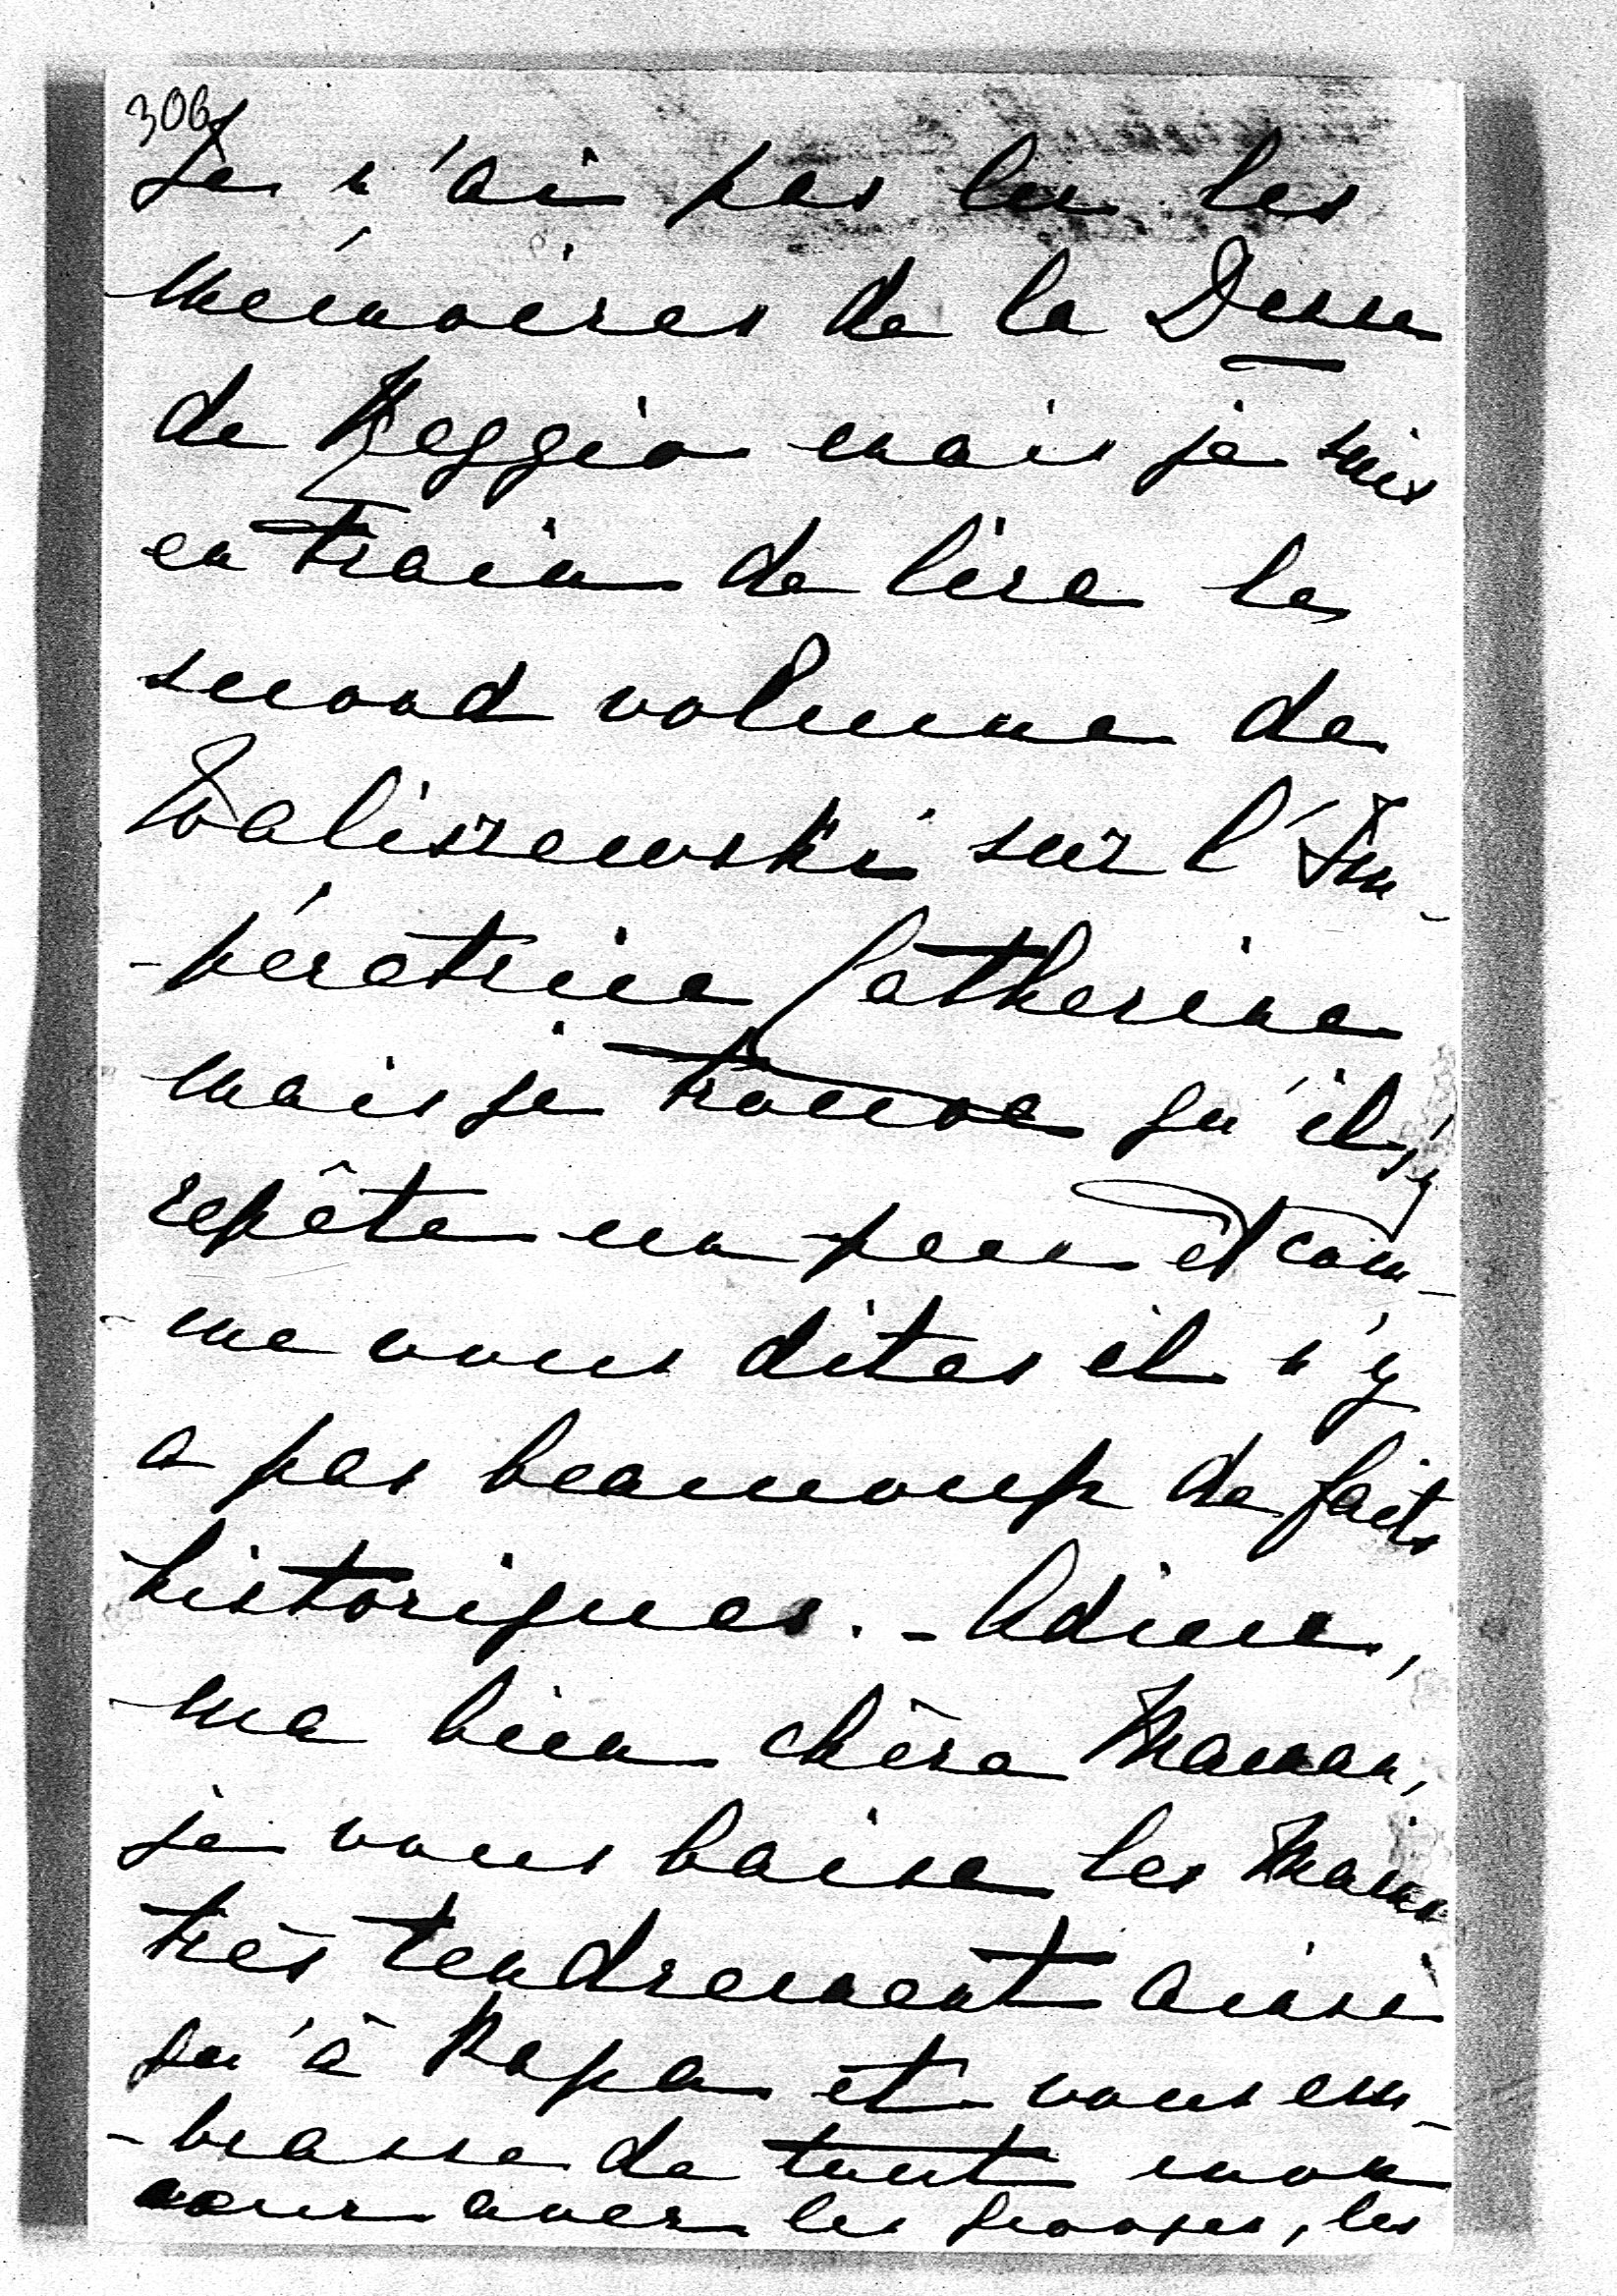 306
Je n'ai pas lu les
mémoires de la Desse
de Reggio mais je suis
en train de lire le
second volume de
Waliszewski sur l'Im-
-pératrice Catherine
mais je trouve qu'il y
repête un peu et com-
-me vous dites il n'y
a pas beaucoup de faits
historiques. - Adieu,
ma bien chère Maman,
je vous baise les mains
très tendrement ainsi
qu'à Papa et vous em-
-brasse de tout mon
cœur avec les